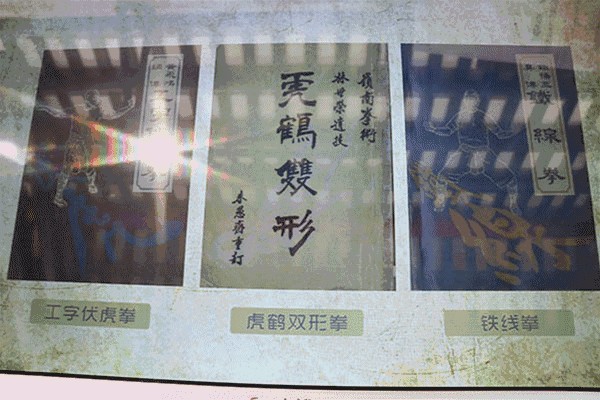 黃飛鴻
嶺南拳術
林世榮遺技
虎鶴雙形
朱愚齋重訂
鐵線拳
工字伏虎拳
虎鹤双形拳
铁线拳